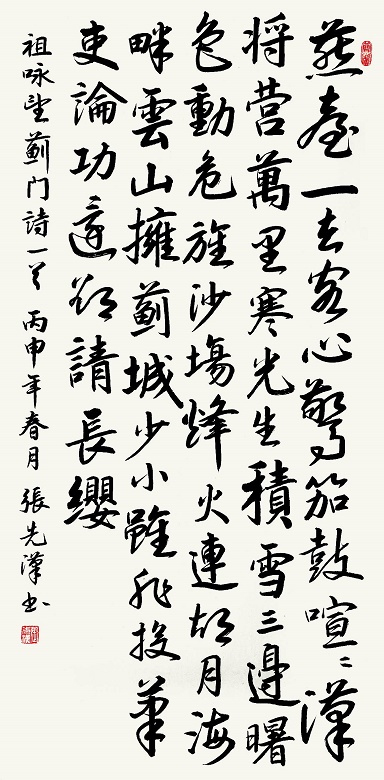 燕臺一去客心驚笳鼓喧々漢
将营萬里寒光生積雪三邊曙
色動危旌沙塲烽火連胡月海
畔雲山擁薊城少小雖非投筆
吏論功還欲請長纓
祖咏望薊门詩一首 丙申年春月 張先漢书